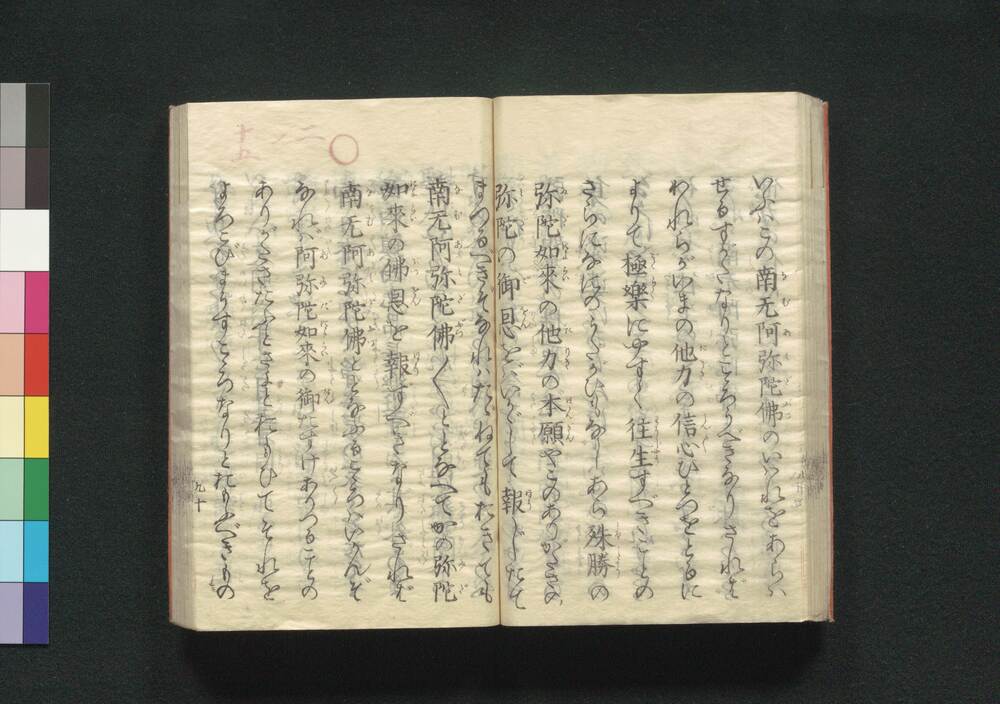 いへはこの南无阿弥陀佛のいはれをあらは
せるすかたなりとこゝろうへきなりされば
われらがいまの他力の信心ひとつをとるに
よりて極樂にやすく往生すべきことの
さらになにのうたがひもなしあら殊勝の
弥陀如來の他力の本願やこのありかたさの
弥陀の御恩をばいかゞして報じたて
まつるへきそなれはたゝねてもおきても
南无阿弥陀佛〱ととなへてかの弥陀
如來の佛恩を報ずべきなりされば
南无阿弥陀佛ととなふるこゝろはいかんぞ
なれば阿弥陀如來の御たすけありつることの
ありがたさたふとさよとおもひてそれを
よろこびまうすこゝろなりとおもふべきもの
九十
二ノ十五